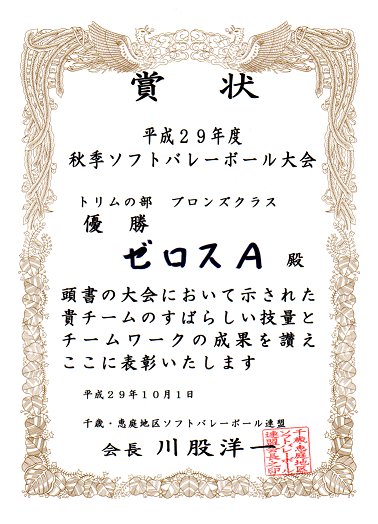 賞状
平成29年度
秋季ソフトバレーボール大会
トリムの部 ブロンズクラス
優勝
ゼロスA 殿
頭書の大会において示された
貴チームのすばらしい技量と
チームワークの成果を讃え
ここに表彰いたします
平成29年10月1日
千歳・恵庭地区ソフトバレーボール連盟
会長 川股洋一
千歳・恵庭地区
ソフトバレーボール
連盟会長之印